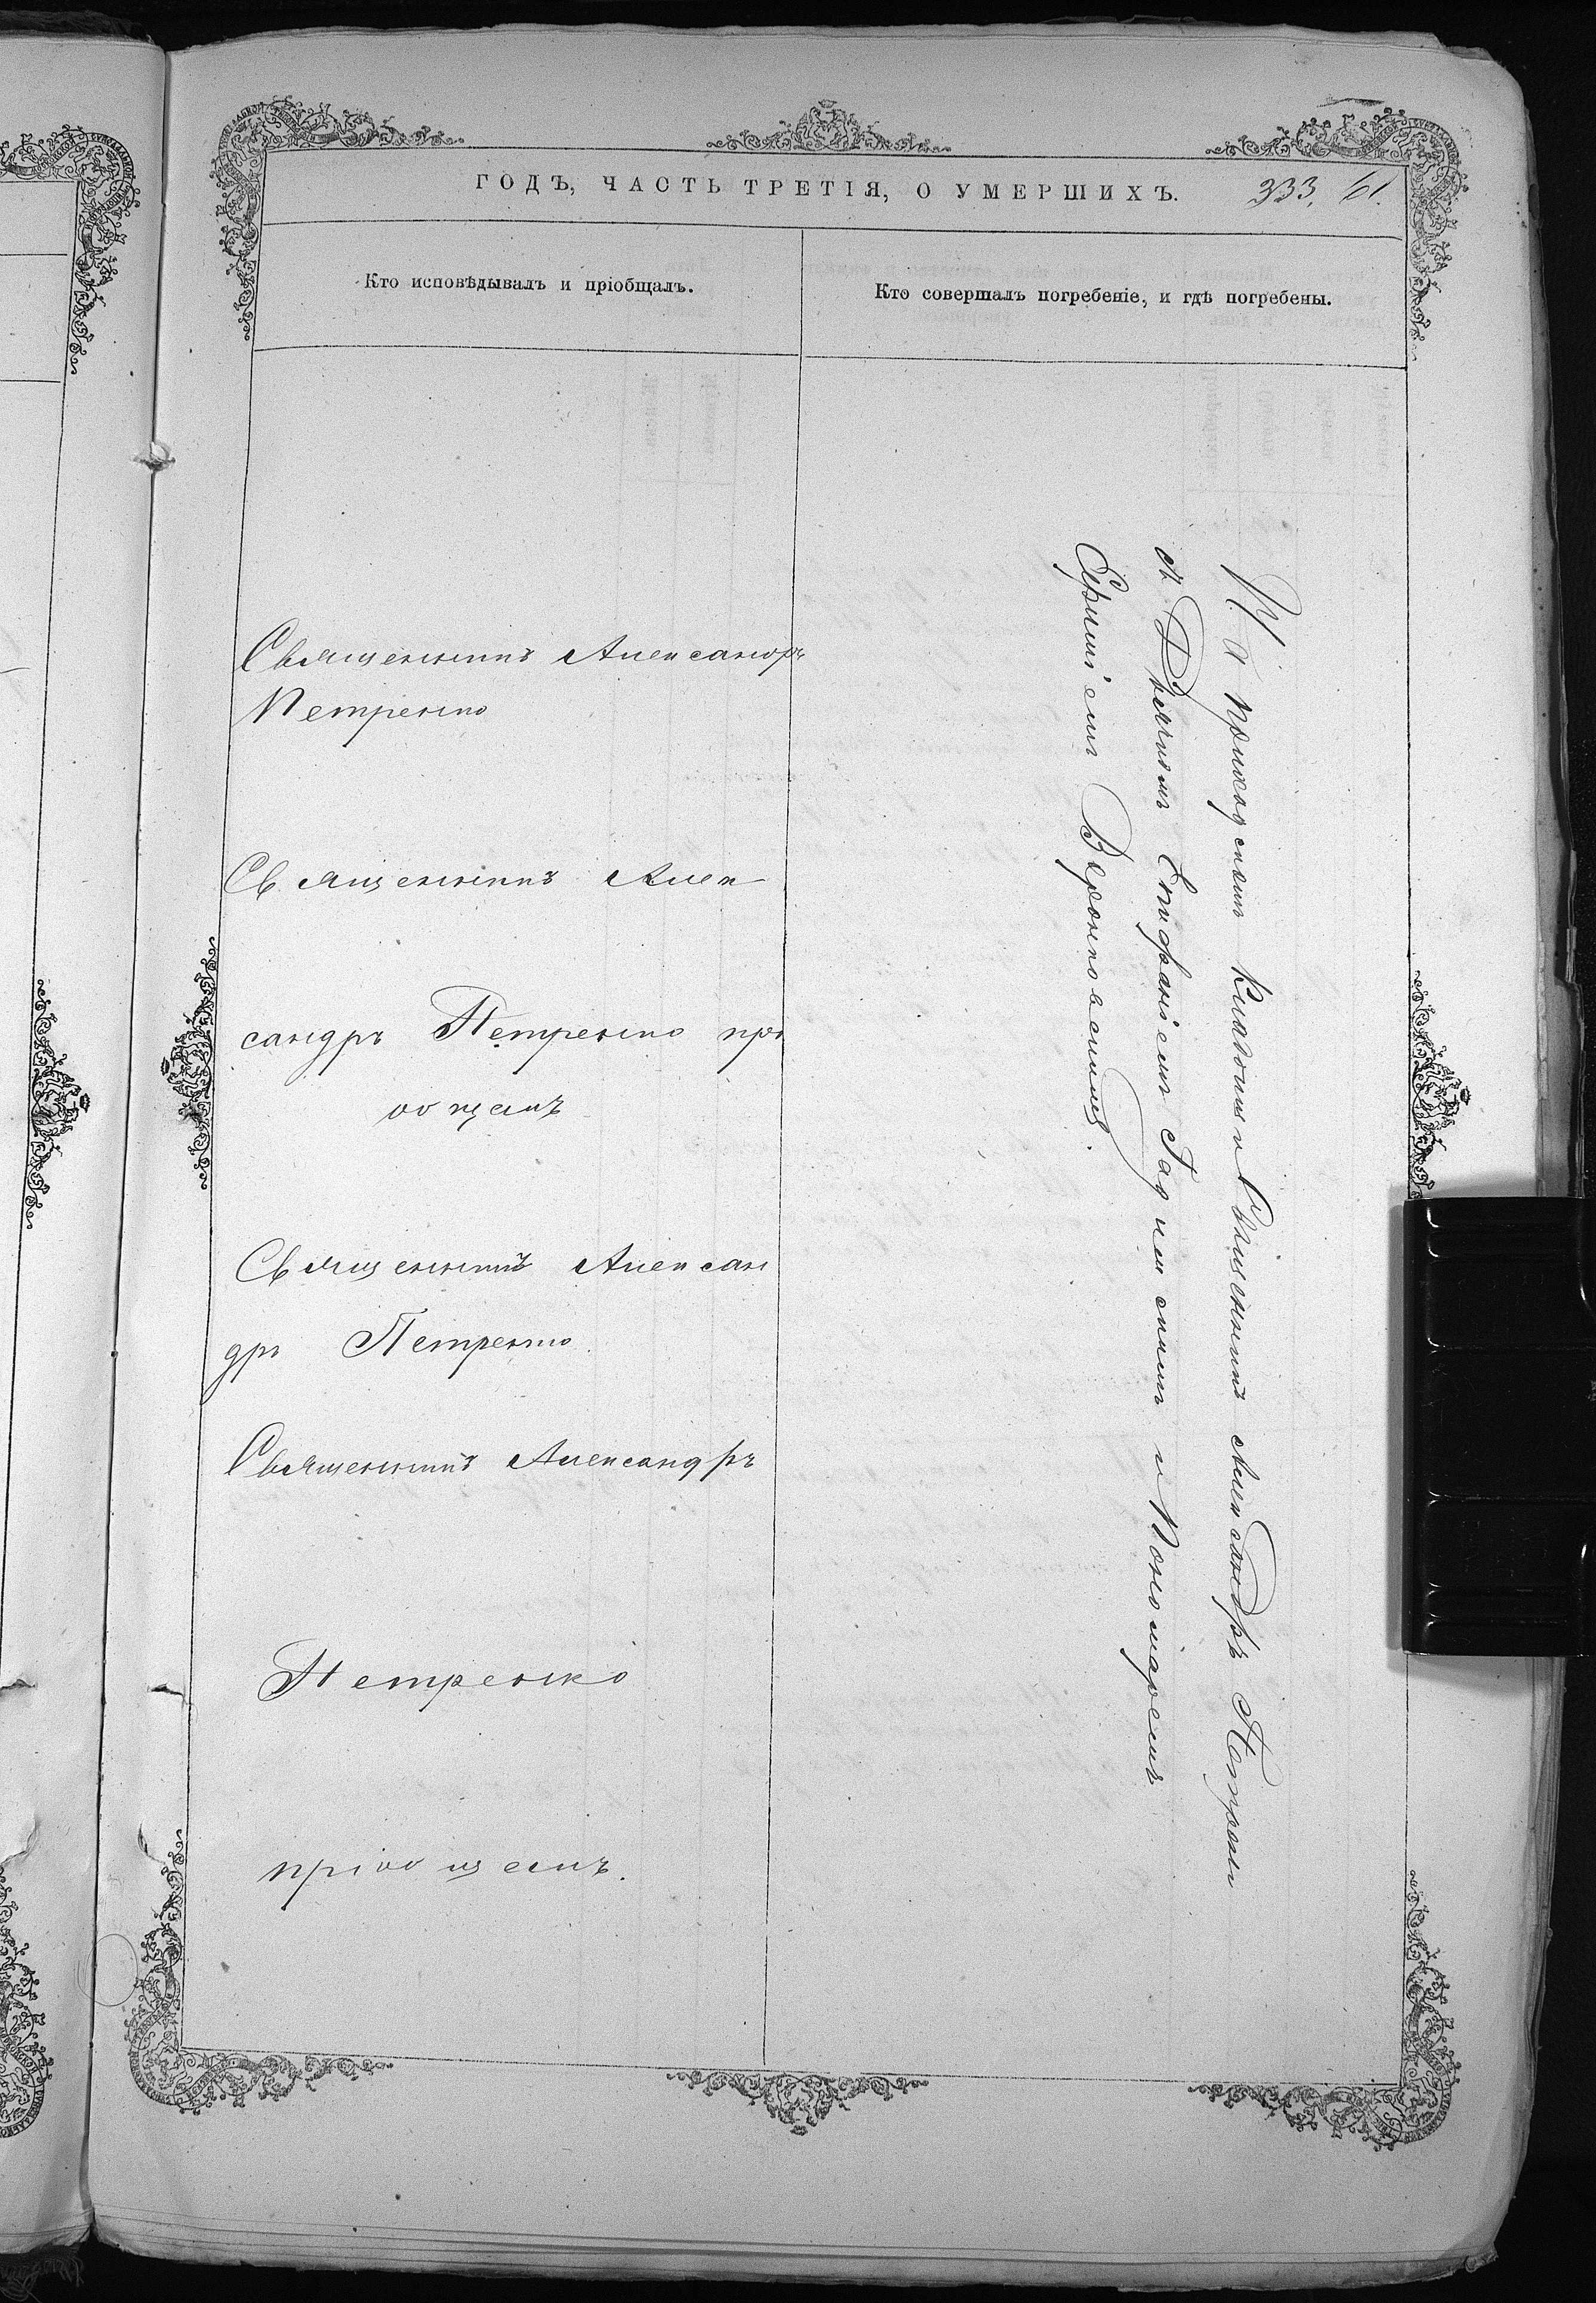 ГОДЪ, ЧАСТЬ ТРЕТІЯ, О УМЕРШИХЪ. 333. 61.
Кто исповѣдывалъ и пріобщалъ.
Кто совершалъ погребеніе, и гдѣ погребены.
Священникъ Александръ
Петренко
Священникъ Алек
сандръ Петренко прі
общалъ
Священникъ Алексан
дръ Петренко
Священникъ Александръ
Петренко
пріобщалъ.
На приходскомъ кладбищѣ Священникъ Александръ Петренко
съ Дьячкомъ Епифаніемъ и Пономаремъ